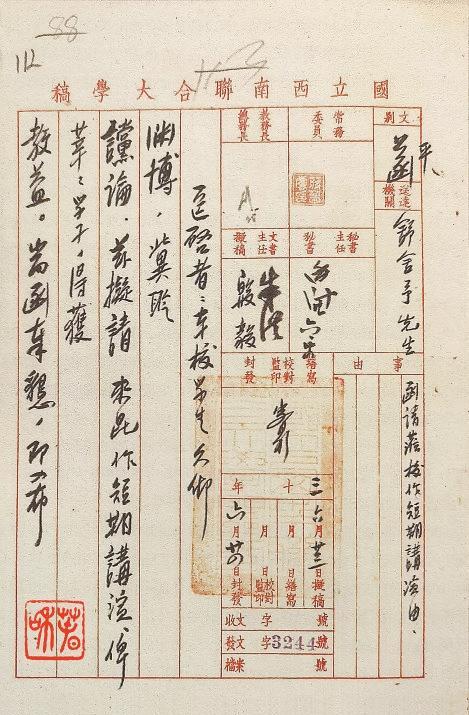 88
112
國立西南聯合大學稿
文別
公函
平
送達機關
舒舍予先生
事由
函請蒞校作短期講演由。
常務委員
教務長
總務長
秘書主任
秘書
文書主任
擬稿
朱洪
殷毅
繕寫
校對
監印
封發
三十年
六月廿三日擬稿
月 日繕寫
月 日校對監印
六月廿四日封發
收文 字 號
發文 字 3244 號
檔案 號
逕啓者:本校學生久仰
淵博,冀聆
讜論。茲擬請 來昆作短期講演,俾
莘莘學子,得獲
教益。耑函奉懇,即希